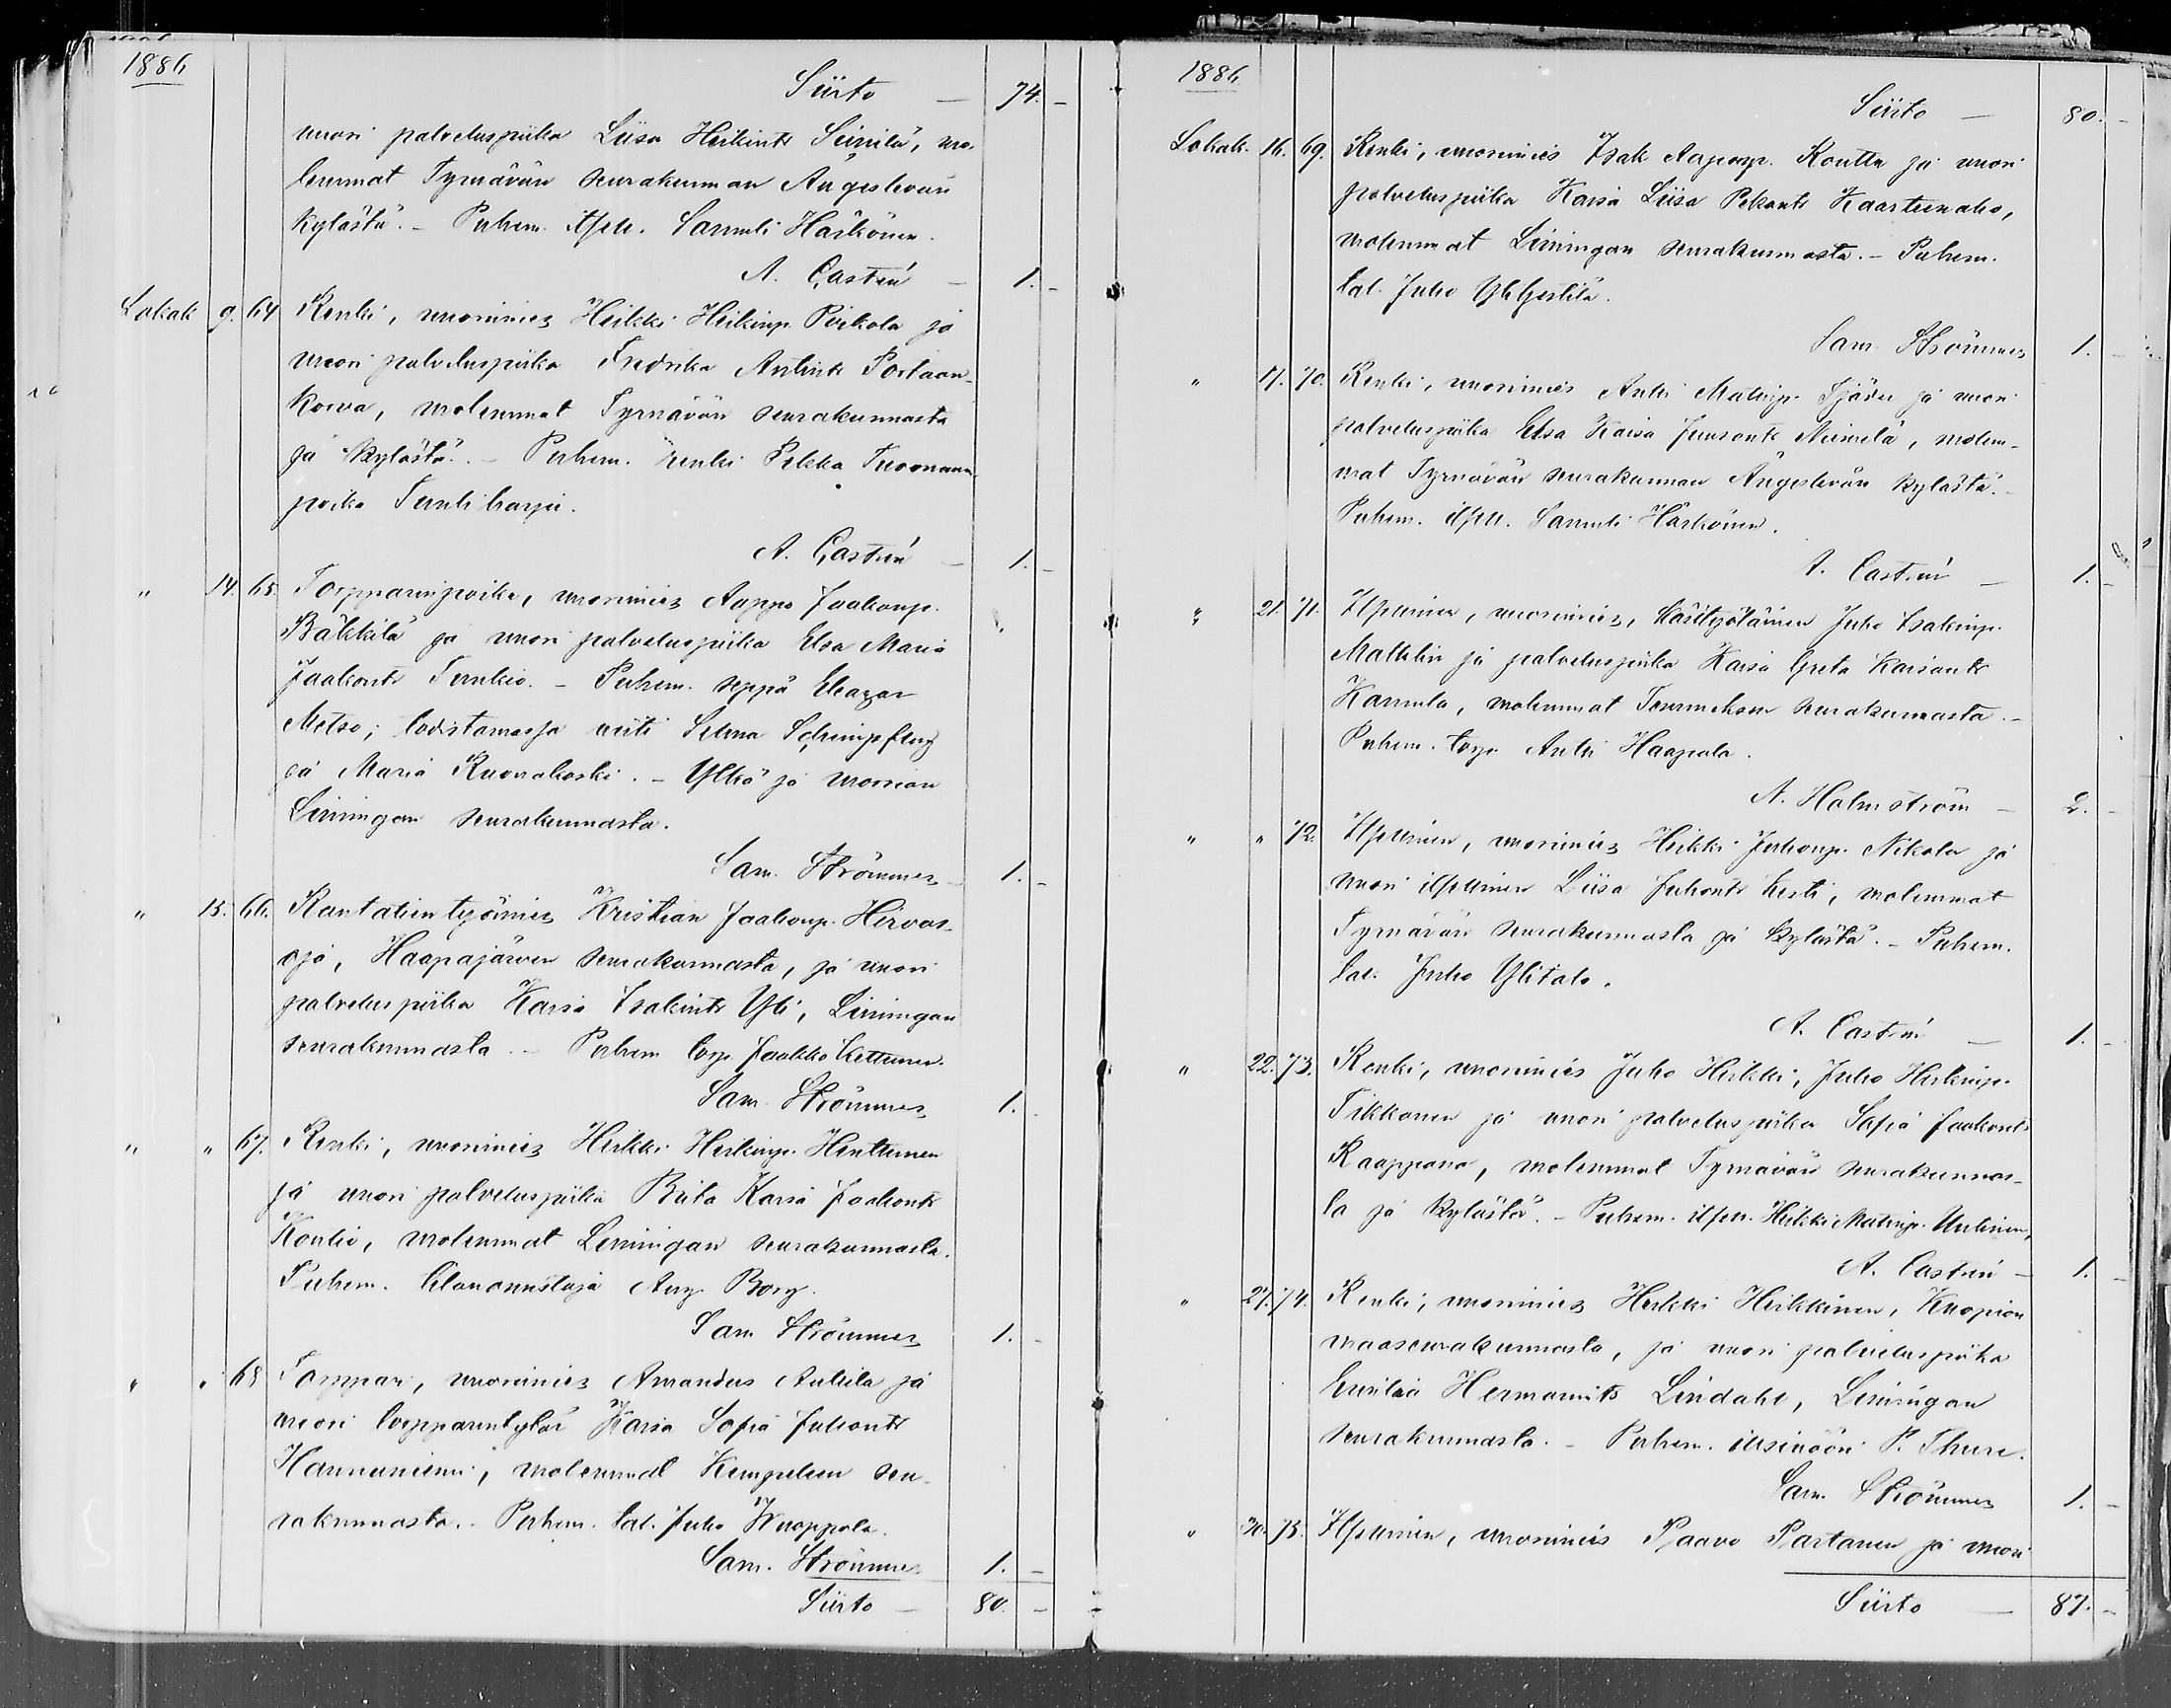 1886
Siirto — 74. —
nuori palveluspiika Liisa Heikintr Seinilä, mo-
lemmat Tyrnävän seurakunnan Ängeslevän
kylästä. — Puhem. itsell. Samuli Härkönen.
A. Castrén — 1. —
Lokak. 9. 64 Renki, nuorimies Heikki Heikinp. Pirkola ja
nuori palveluspiika Fredrika Antintr Portaan-
korva, molemmat Tyrnävän seurakunnasta
ja kylästä. — Puhem. renki Pekka Tuomaan-
poika Tuuliharju.
A. Castrén — 1. —
" 14. 65. Torpparinpoika, nuorimies Aappo Jaakonp.
Bäkkilä ja nuori palveluspiika Elsa Maria
Jaakontr Tunkio. — Puhem. seppä Eleazar
Metso; todistamassa neiti Selma
ja Maria Ruonakoski. — Ylkä ja morsian
Limingan seurakunnasta.
Sam. Strömmer — 1. —
" 15. 66. Rautatientyömies Kristian Jaakonp. Hirvas-
oja, Haapajärven seurakunnasta, ja nuori
palveluspiika Kaisa Isakintr Yli, Limingan
seurakunnasta. — Puhem torp. Jaakko Kettunen.
Sam. Strömmer 1.
" " 67. Renki, nuorimies Heikki Heikinp. Hinttunen
ja nuori palveluspiika Brita Kaisa Jaakontr
Koutio, molemmat Limingan seurakunnasta.
Puhem. tilanomistaja Aug. Borg.
Sam Strömmer 1. —
" " 68 Torppari, nuorimies Amandus Anttila ja
nuori torpparintytär Kaisa Sofia Juhontr
Hannuniemi, molemmat Kempeleen seu-
rakunnasta. — Puhem. tal. Juho Knoppola.
Sam. Strömmer 1. —
Siirto — 80. —
1886
Siirto — 80. —
Lokak. 16. 69. Renki, nuorimies Isak Aaponp. Koutta ja nuori
palveluspiika Kaisa Liisa Pekantr Kaartinaho,
molemmat Limingan seurakunnasta. — Puhem.
tal. Juho
Sam Strömmer 1. —
" 17. 70. Renki, nuorimies Antti Matinp. Tjäder ja nuori
palveluspiika Elsa Kaisa Juusontr Niemelä, molem-
mat Tyrnävän seurakunnan Ängeslevän kylästä. —
Puhem. itsell. Samuli Härkönen.
A. Castrén — 1. —
" 21. 71. Itsellinen, nuorimies, käsityöläinen Juho Isakinp.
Matklin ja palveluspiika Kaisa Greta Kaisantr
Karmila, molemmat Temmeksen seurakunnasta. —
Puhem. torp. Antti Haapala.
A. Holmström — 2. —
" " 72. Itsellinen, nuorimies Heikki Juhonp. Nikola ja
nuori itsellinen Liisa Juhontr Kesti, molemmat
Tyrnävän seurakunnasta ja kylästä. — Puhem.
tal. Juho Ylitalo.
A. Castrén — 1. —
" 22. 73. Renki, nuorimies Juho Heikki, Juho Heikinp.
Tikkanen ja nuori palveluspiika Sofia Jaakontr
Kaappana, molemmat Tyrnävän seurakunnas-
ta ja kylästä. — Puhem. itsell. Heikki Matinp. Untinen,
A. Castrén — 1. —
" 27. 74. Renki, nuorimies Heikki Heikkinen, Kuopion
maaseurakunnasta, ja nuori palveluspiika
Emilia Hermannintr Lindahl, Limingan
seurakunnasta. — Puhem. insinööri P. Thure.
Sam. Strömmer 1. —
" 30. 75. Itsellinen, nuorimies Paavo Partanen ja nuori
Siirto — 87. —